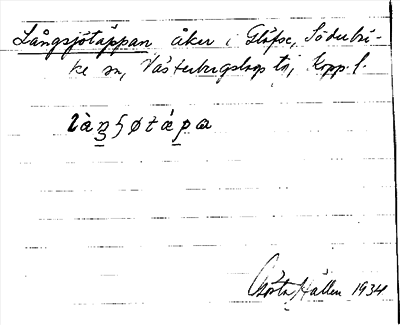 Långsjötäppan åker i Gläfse, Söderbä-
ke sn, Västerbergslags ts, Kopp. l.
làŋʃøtápa
Gösta Hållen 1934